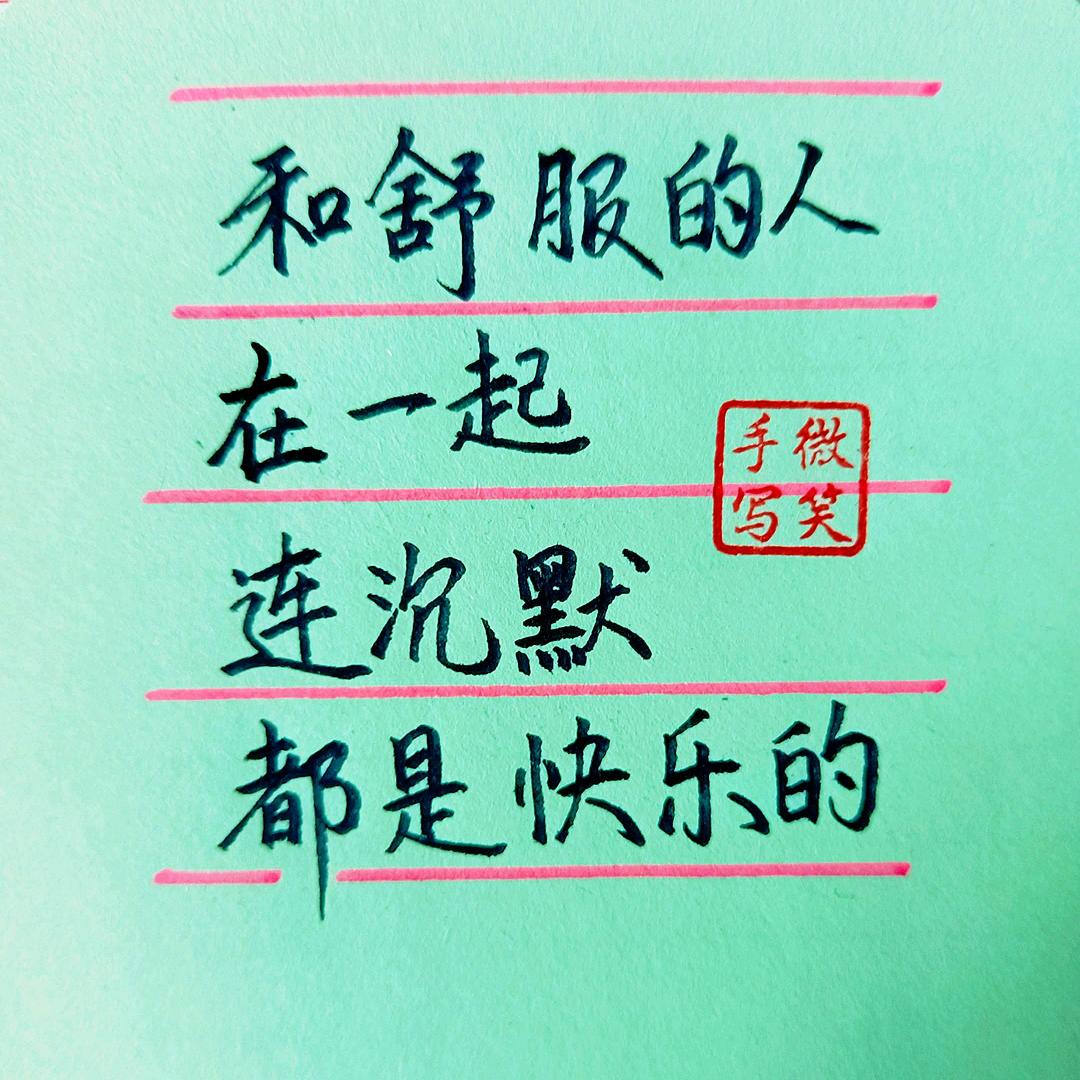 和舒服的人
在一起
微笑
手写
连沉默
都是快乐的